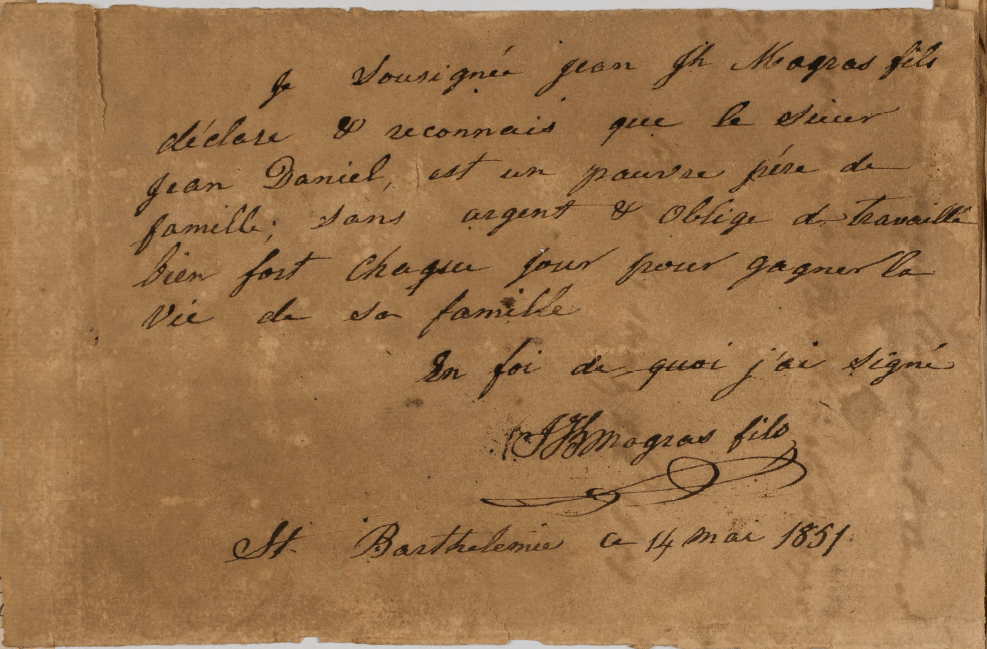 Je Sousignée jean Jh Magras fils
déclare & reconnais que le sieur
Jean Daniel, est un pauvre pére de
famille; sans argent & Oblige de travaillé
bien fort chaque jour pour gagner la
Vie de sa famille
En foi de quoi j'ai signé
JH Magras fils
St. Barthelemie ce 14 mai 1851